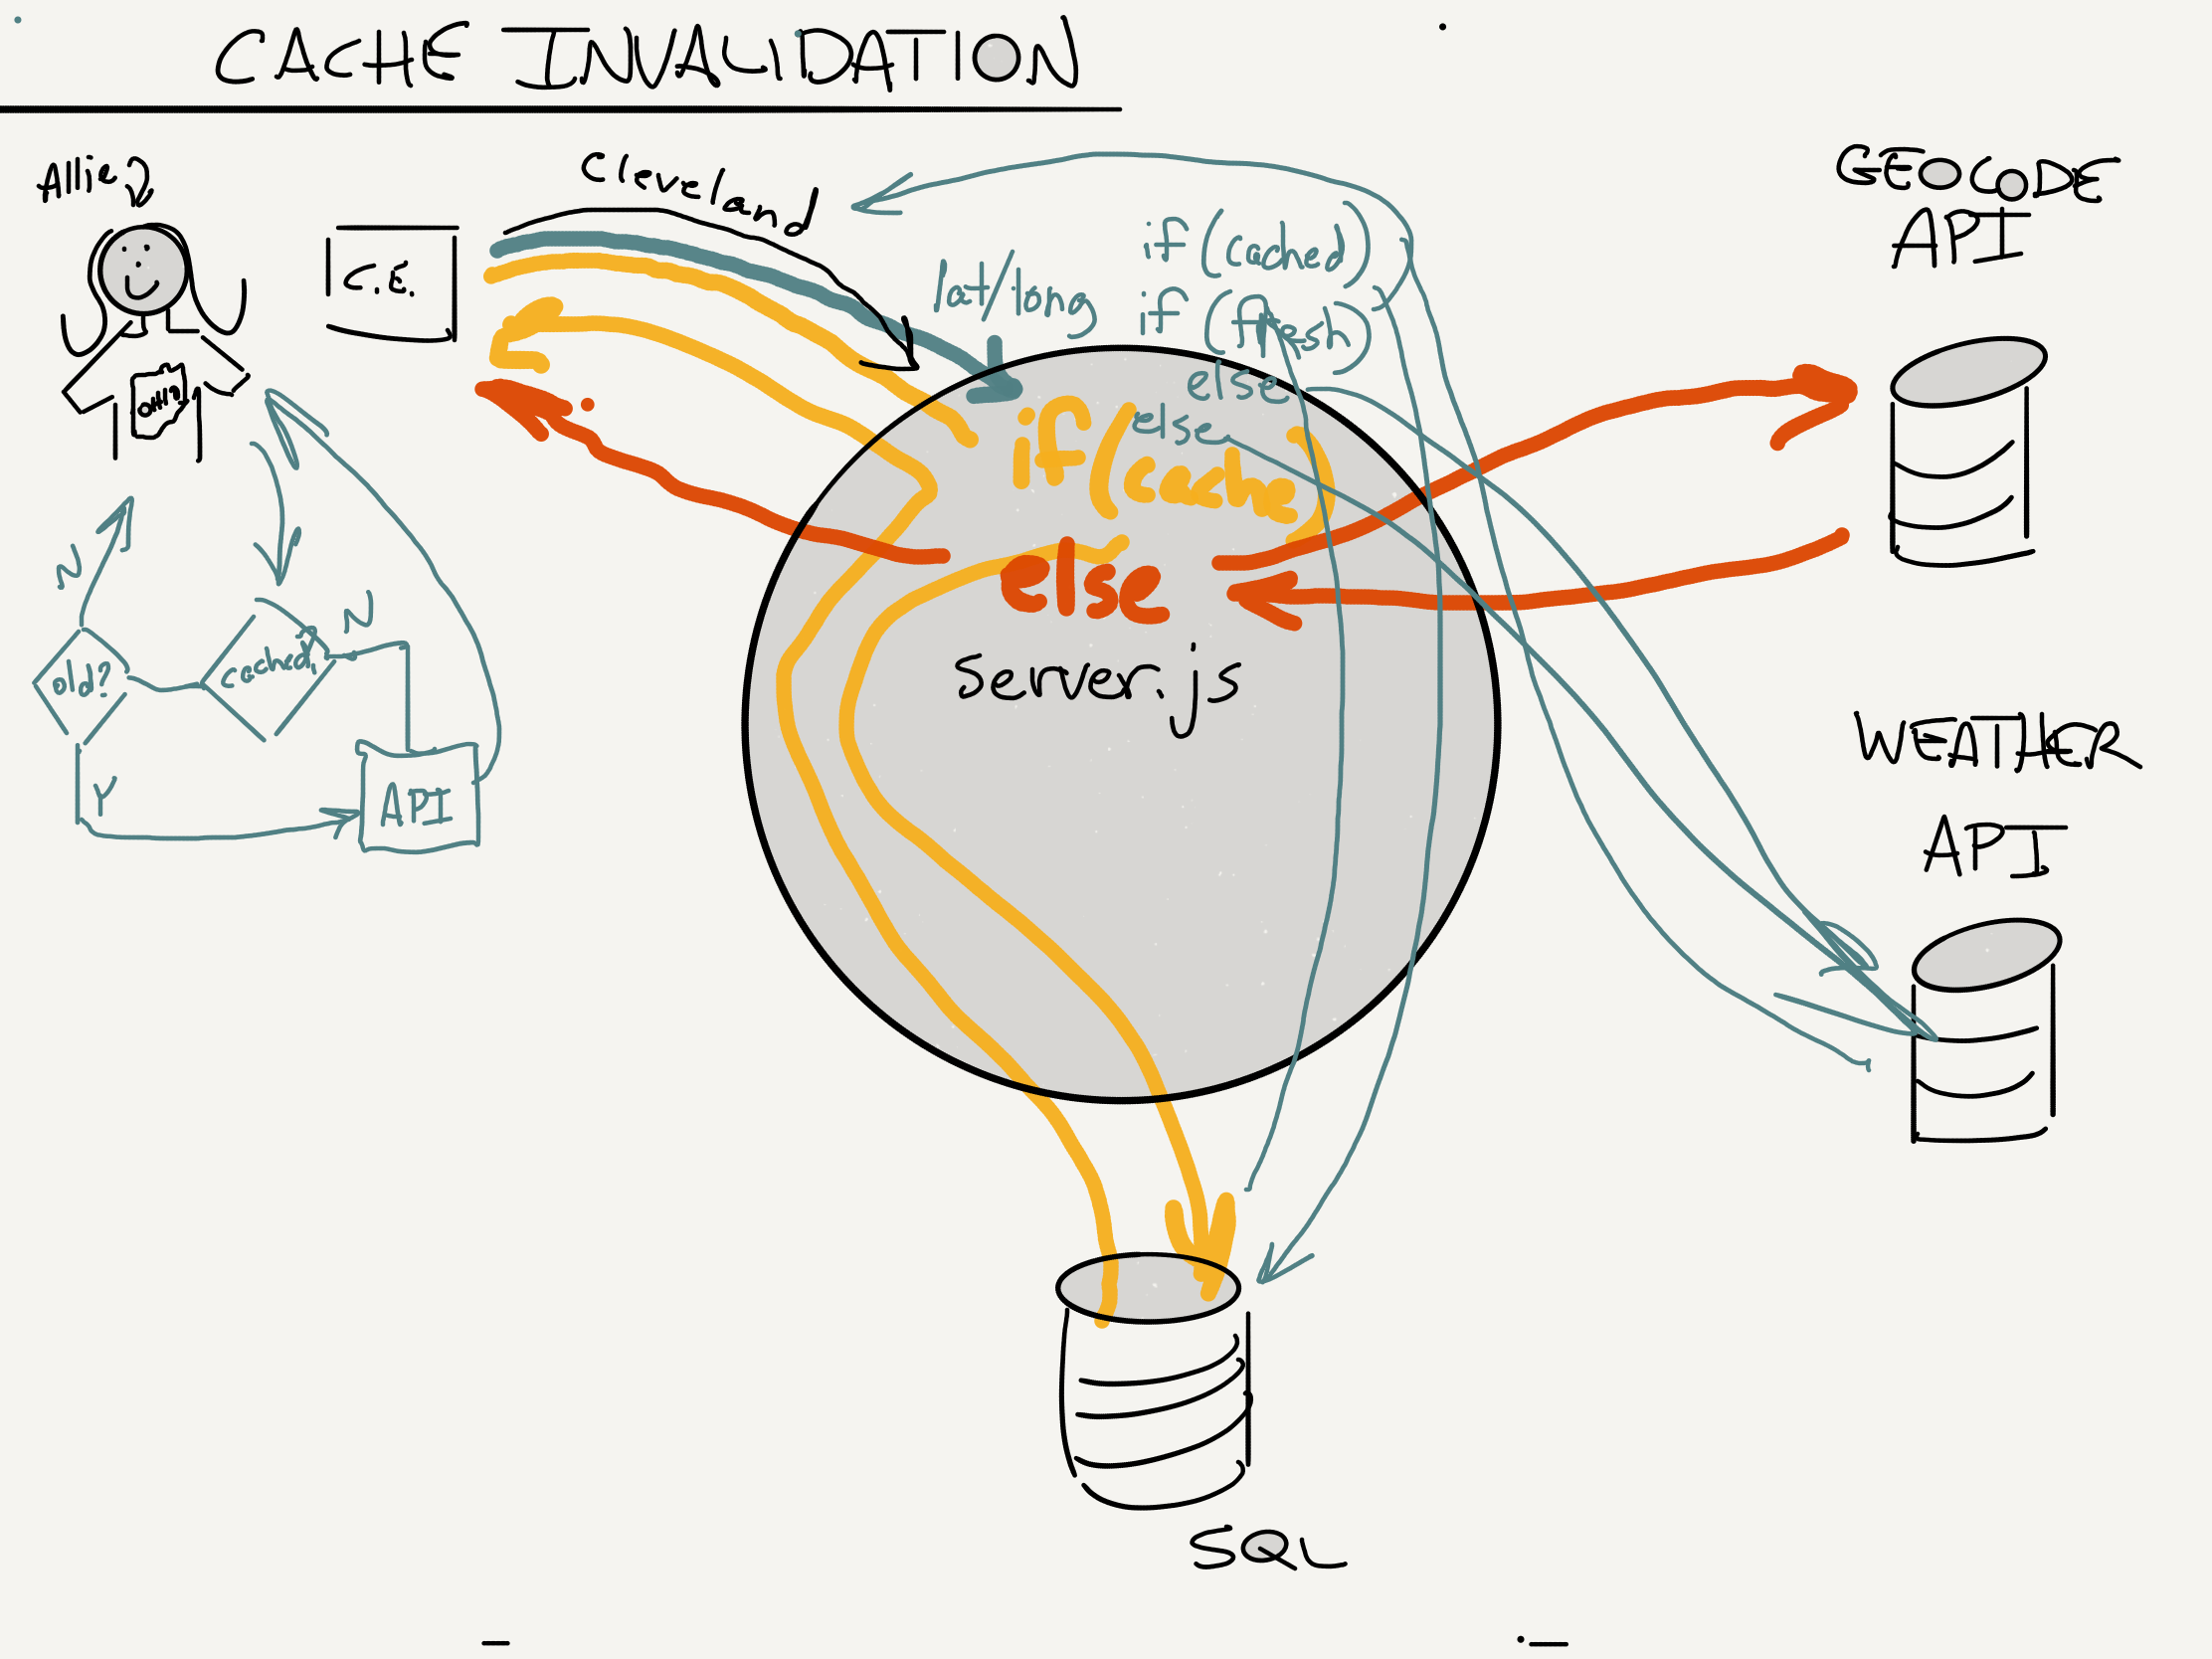 CACHE INVALIDATION
Allie
C.S.
Cleveland
lat/long
if (cached)
if (fresh)
else
else
if (cache)
else
server.js
GEOCODE
API
WEATHER
API
SQL
N
old?
cached?
N
Y
API